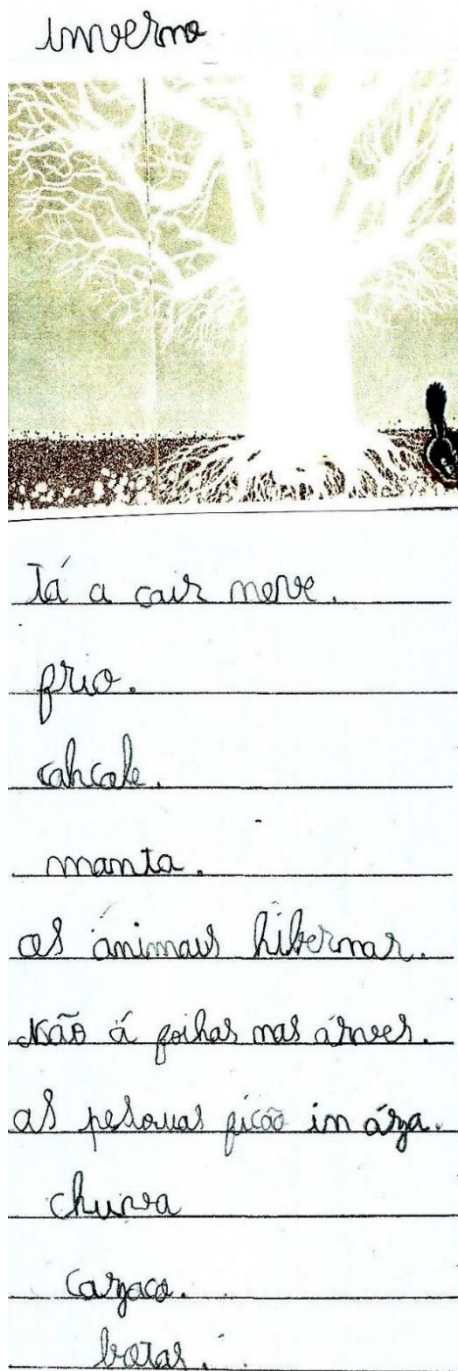 inverno
Tá a cair neve.
frio.
cahcole.
manta.
os ánimais hibernar.
Não á foihas nas árves.
as pesouas ficão in ága.
chuva
cazaco.
botas.